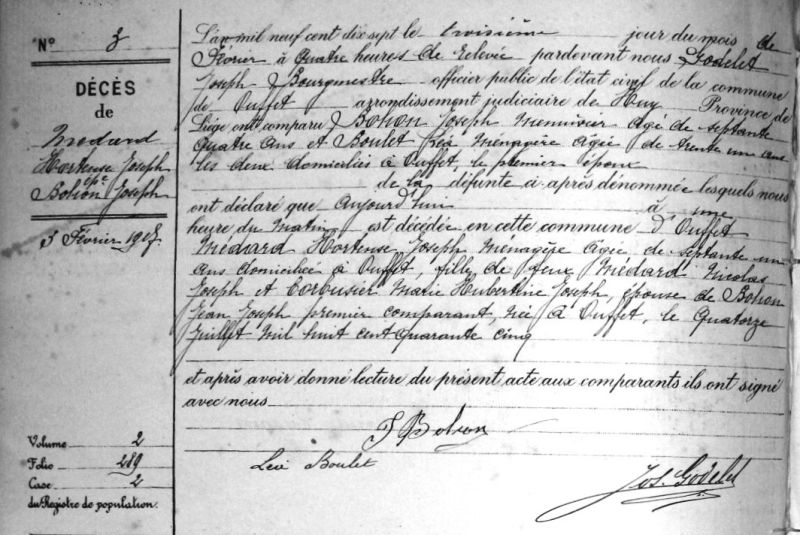 N° 3
DÉCÈS
de
Médard
Hortense Joseph
épe
Bohon Joseph
3 Février 1917
Volume 2
Folio 289
Case 2
du Registre de population.
L'an mil neuf cent dix sept le troisième jour du mois de
Février à quatre heures de relevée pardevant nous Godelet
Joseph Bourgmestre officier public de l'état civil de la commune
de Ouffet arrondissement judiciaire de Huy Province de
Liége ont comparu Bohon Joseph Menuisier Agé de septante
quatre ans et Boulet Léa Ménagère âgée de trente un ans
les deux domiciliés à Ouffet, le premier époux
de la défunte ci-après dénommée lesquels nous
ont déclaré que aujourd'hui à une
heure du matin est décédée en cette commune d'Ouffet
Médard Hortense Joseph Ménagère âgée de septante un
ans domiciliée à Ouffet, fille de feux Médard Nicolas
Joseph et Corbusier Marie Hubertine Joseph, épouse de Bohon
Jean Joseph premier comparant, née à Ouffet, le Quatorze
Juillet mil huit cent quarante cinq
et après avoir donné lecture du présent acte aux comparants ils ont signé
avec nous
J Bohon
Léa Boulet
Jos. Godelet